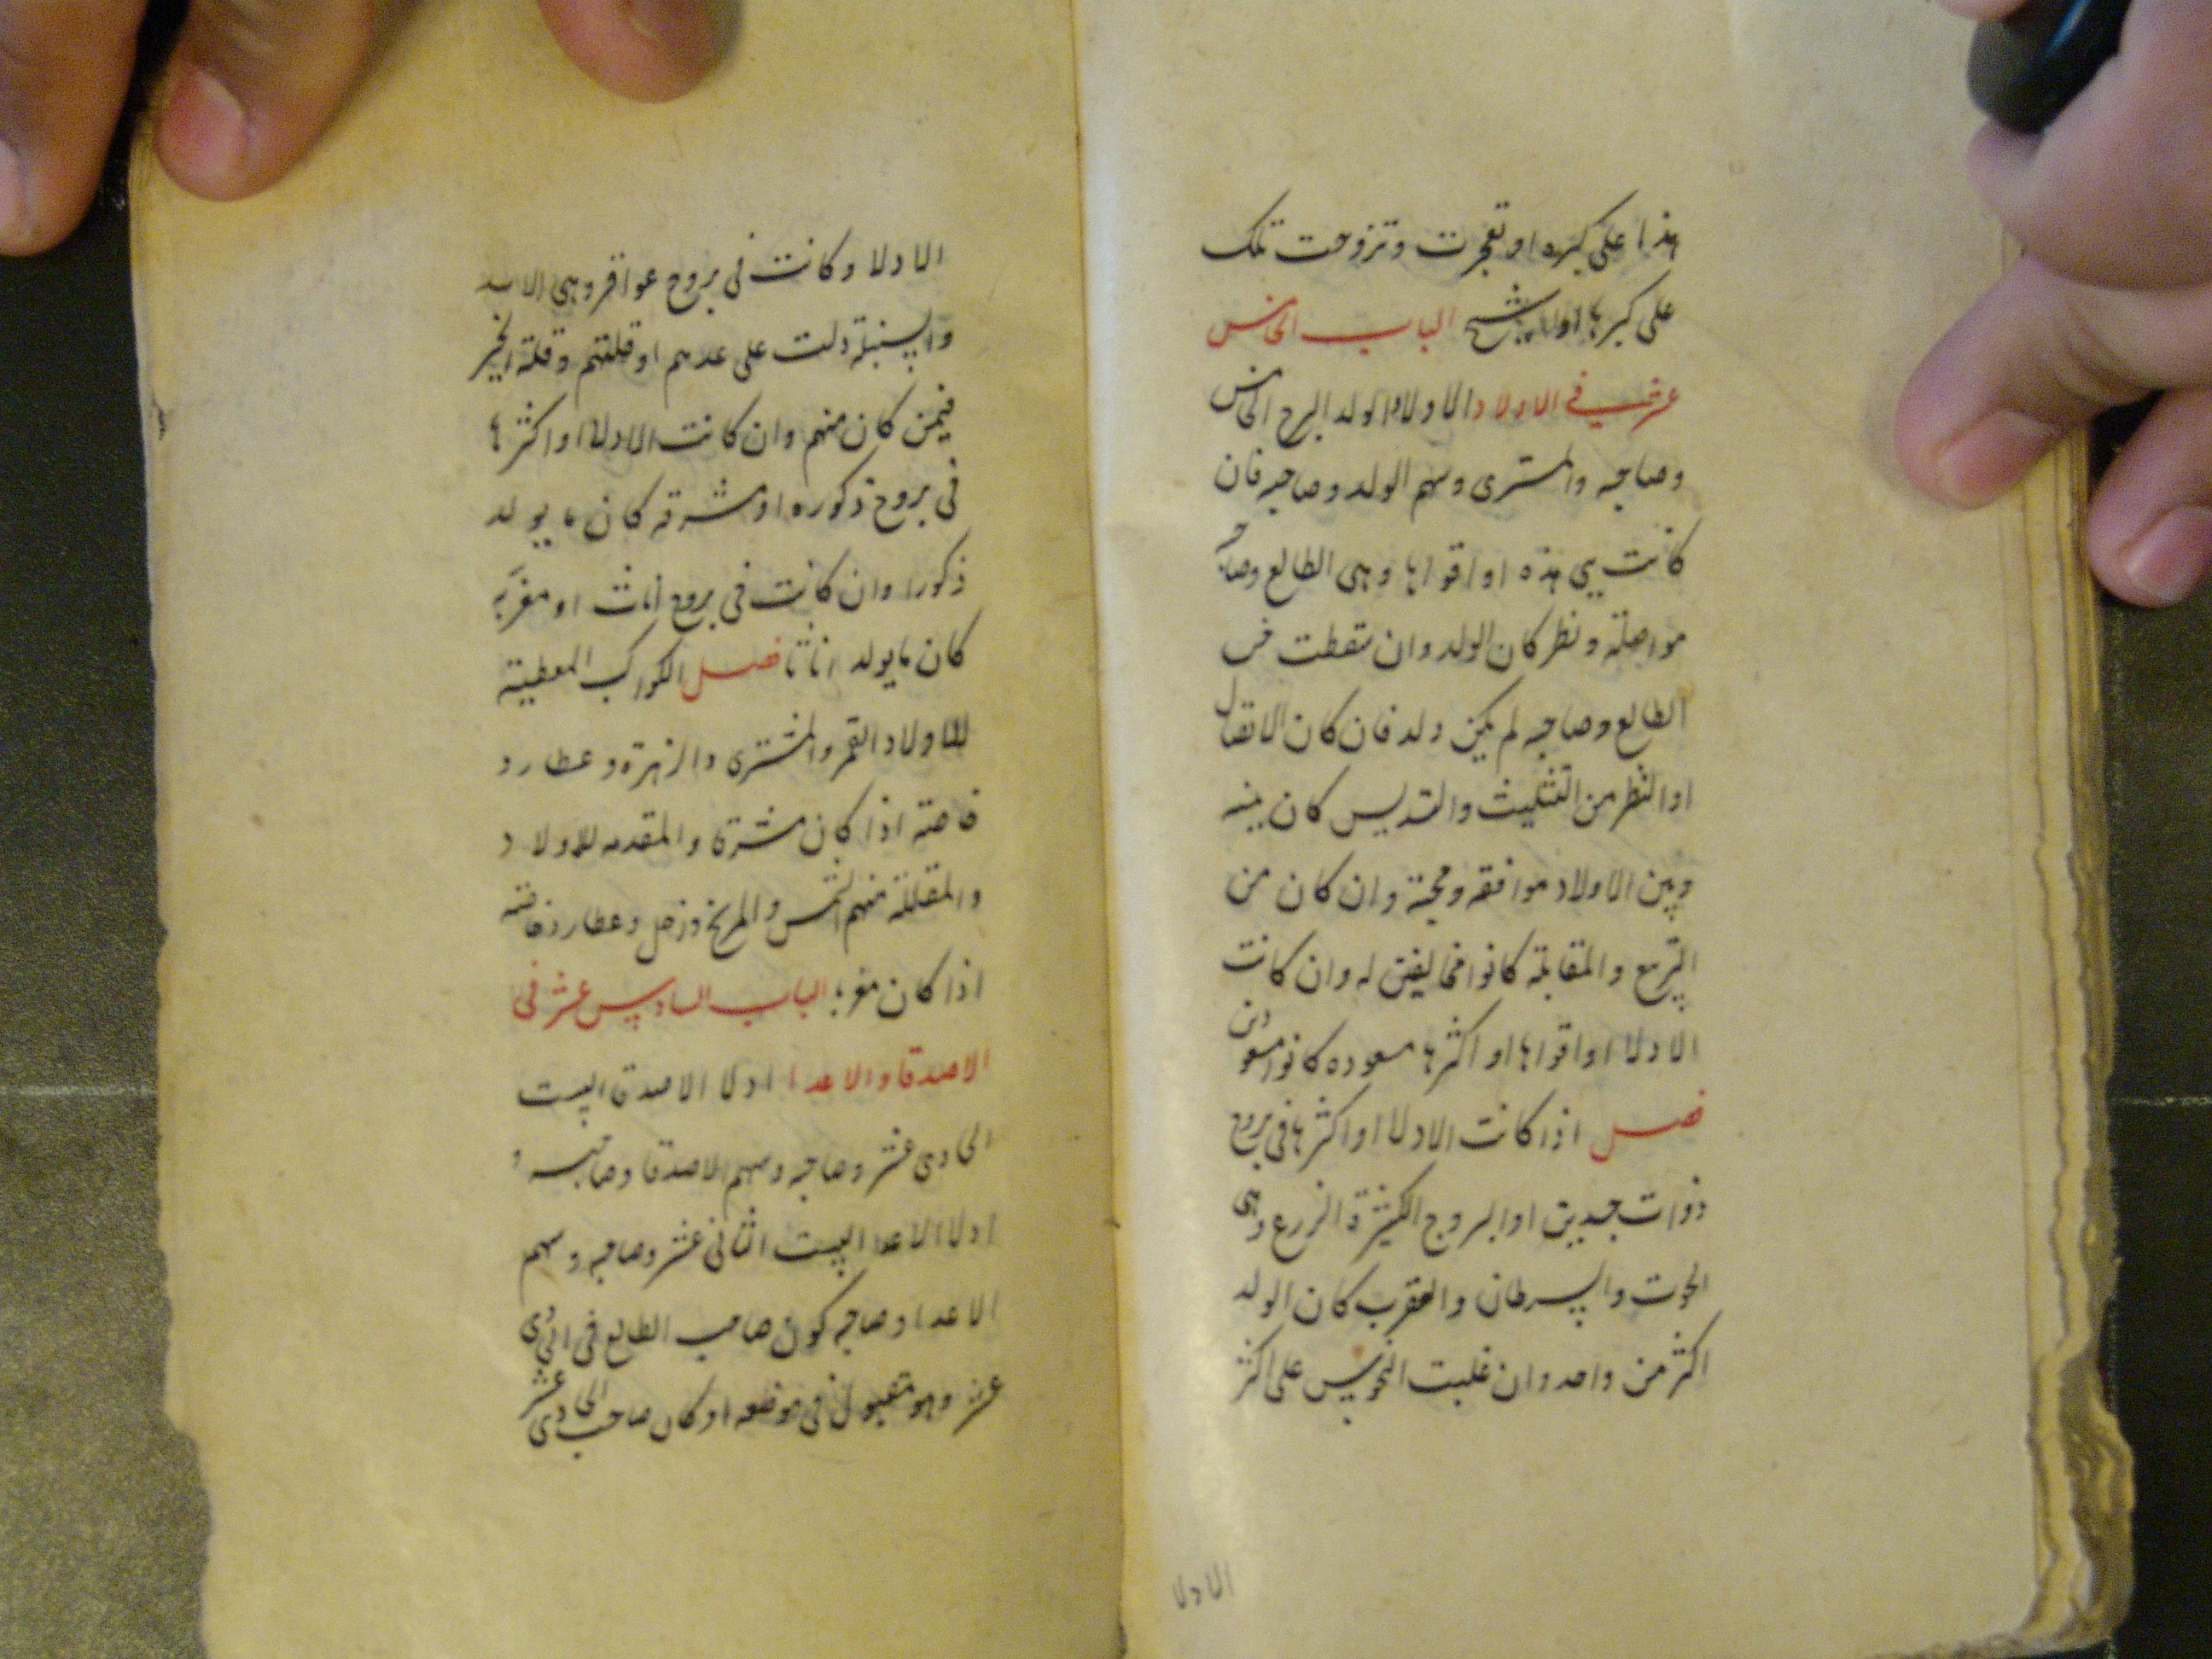 هذا على كبره او تفجرت وتزوجت تلك
على كبرها او شيخ الباب الخامس
عشر في الاولاد الاولاد الولد البرج الخامس
وصاحبه والمشترى وسهم الولد وصاحبه فان
كانت هذه او اقواها وهى الطالع وصاحبه
مواصلة ونظر كان الولد وان سقطت فى
الطالع وصاحبه لم يكن ولد فان كان الاتصال
او النظر من التثليث والتسديس كان بينه
وبين الاولاد موافقه ومحبة وان كان من
التربيع والمقابلة كانوا مخالفين له وان كانت
الادلا او اقواها او اكثرها مسعوده كانوا مسعودين
فصل اذا كانت الادلا او اكثرها فى بروج
ذوات جسدين او البروج الكثيرة الزرع وهى
الحوت والسرطان والعقرب كان الولد
اكثر من واحد وان غلبت النحوس على اكثر
الادلا
الادلا وكانت فى بروج عواقر وهى الاسد
والسنبلة دلت على عدمهم او قلتهم وقلة الخير
فيمن كان منهم وان كانت الادلا او اكثرها
فى بروج ذكوره او مشرقه كان ما يولد
ذكورا وان كانت فى بروج اناث او مغربه
كان ما يولد اناثا فصل الكواكب المعطية
للاولاد القمر والمشترى والزهرة وعطارد
خاصة اذا كان مشرقا والمقدمه للاولاد
والمقللة منهم الشمس والمريخ وزحل وعطارد خاصة
اذا كان مغربا الباب السادس عشر فى
الاصدقا والاعدا ادلا الاصدقا البيت
الحادى عشر وصاحبه وسهم الاصدقا وصاحبه و
ادلا الاعدا البيت الثانى عشر وصاحبه وسهم
الاعدا وصاحبه كون صاحب الطالع فى الحادى
عشر وهو مقبول فى موضعه او كان صاحب الحادى عشر